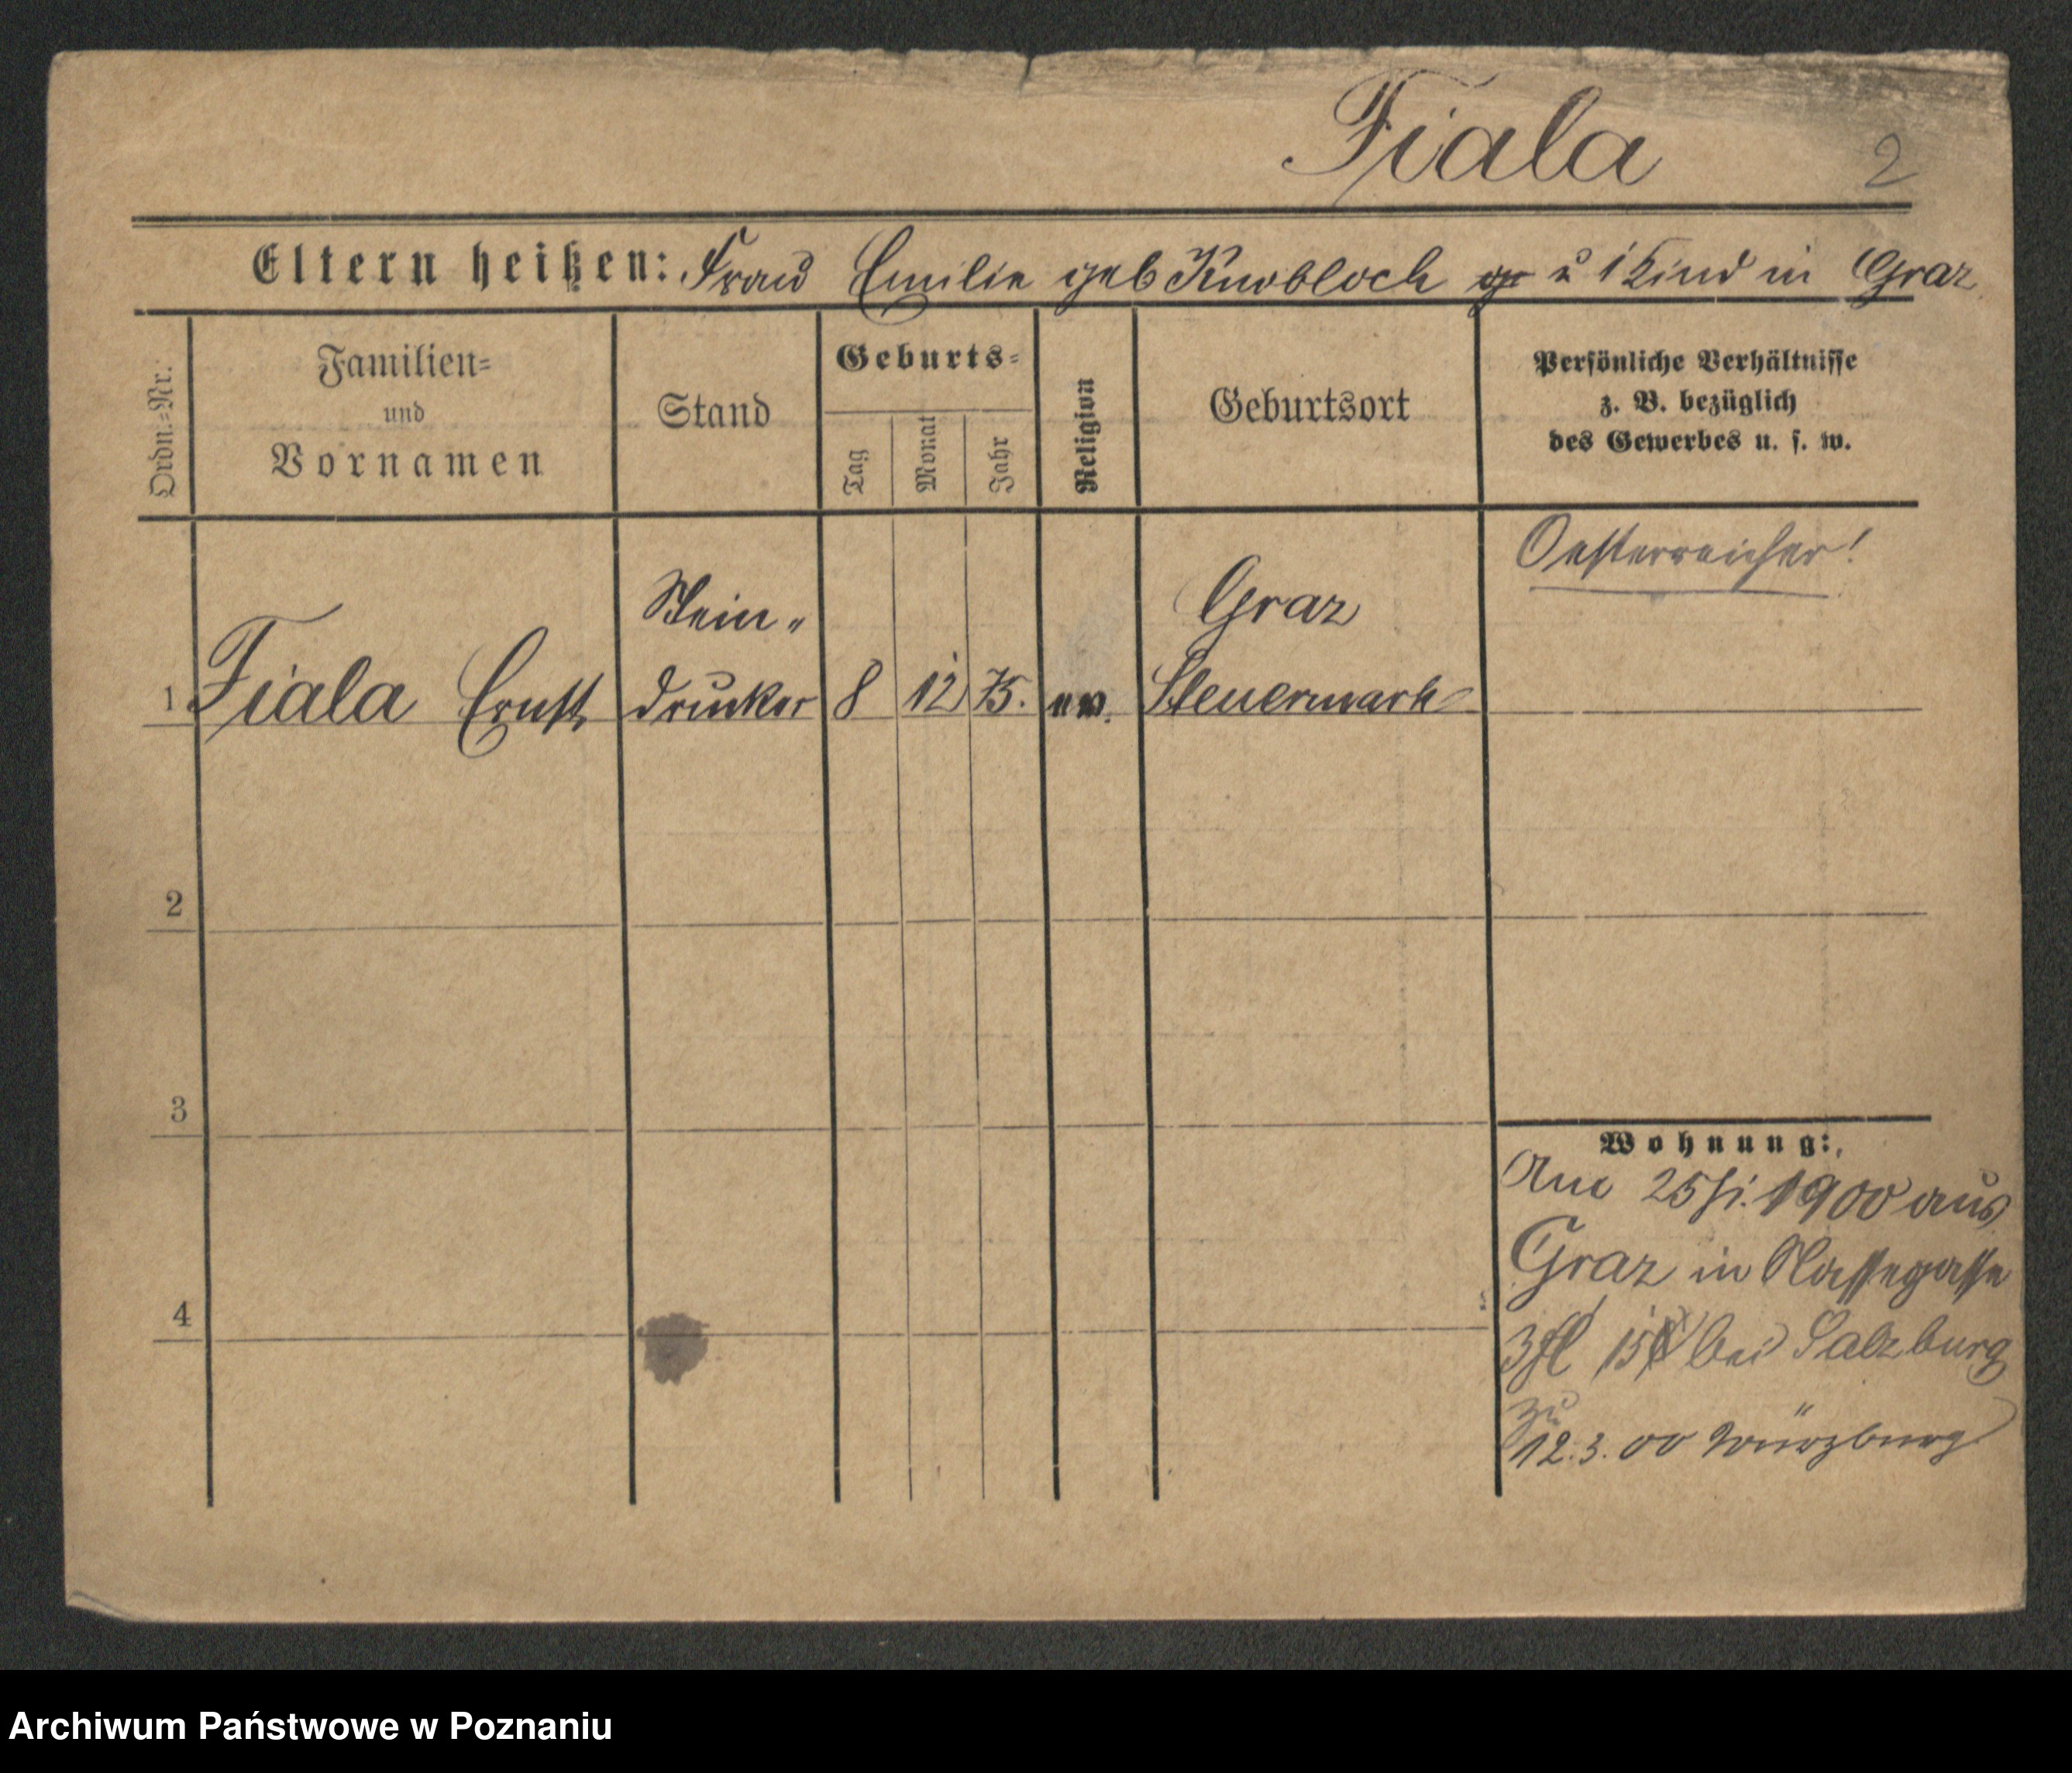 Fiala 2
Eltern heißen: Frau Emilie geb Knobloch u 1 Kind in Graz
Ordn.-Nr.
Familien-
und
Vornamen
Stand
Geburts-
Tag
Monat
Jahr
Religion
Geburtsort
Persönliche Verhältnisse
z. B. bezüglich
des Gewerbes u. s. w.
Oesterreicher!
Stein-
Graz
1 Fiala Ernst drucker 8 12 75. ev. Steuermark
2
3
Wohnung:
Am 25 1900 aus
Graz in
4
bei Salzburg
zu
12.3.00 Würzburg
Archiwum Państwowe w Poznaniu